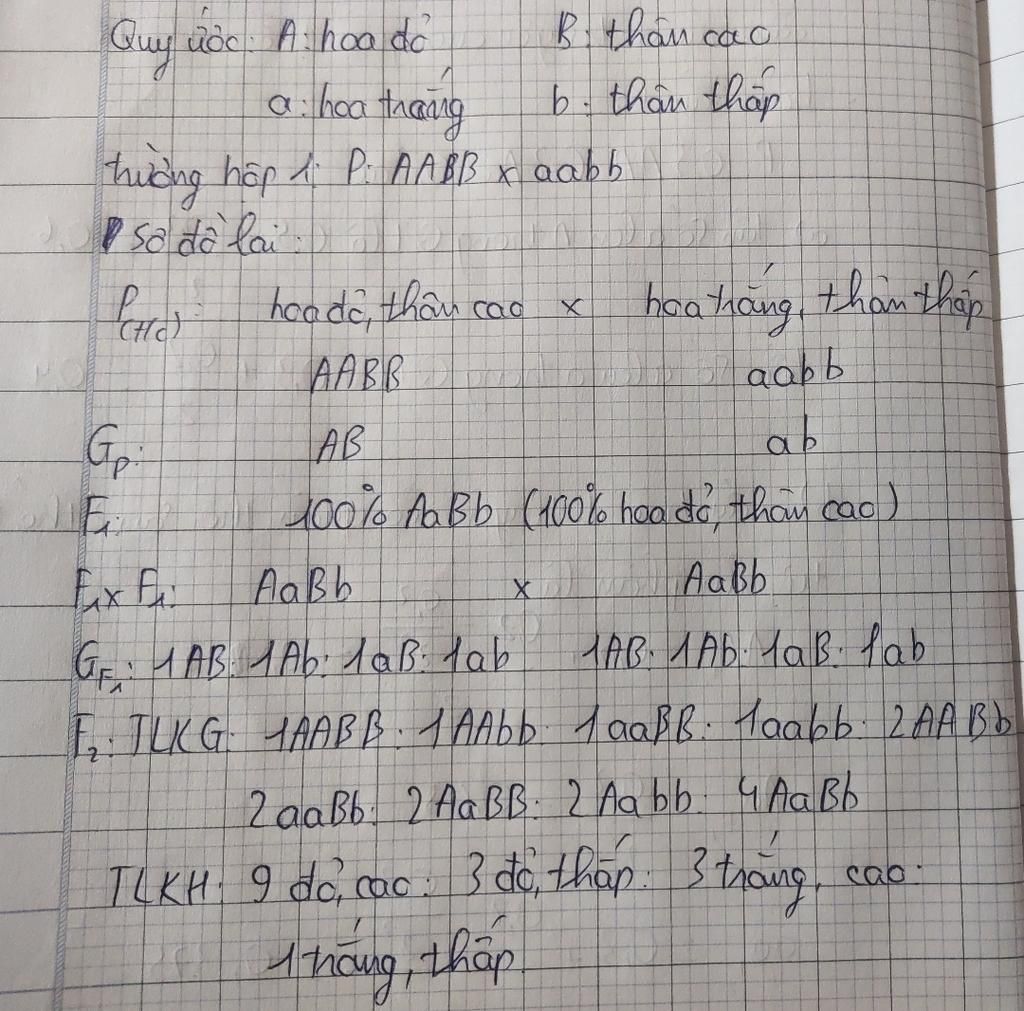 Quy ước: A: hoa đỏ B: thân cao
a: hoa trắng b: thân thấp
trường hợp 1: P: AABB x aabb
sơ đồ lai:
P(t/c): hoa đỏ, thân cao x hoa trắng, thân thấp
AABB aabb
Gp: AB ab
F1: 100% AaBb (100% hoa đỏ, thân cao)
F1 x F1: AaBb x AaBb
GF1: 1AB: 1Ab: 1aB: 1ab 1AB: 1Ab: 1aB: 1ab
F2: TLKG: 1AABB: 1AAbb: 1aaBB: 1aabb: 2AABb
2aaBb: 2AaBB: 2Aabb: 4AaBb
TLKH: 9 đỏ, cao: 3 đỏ, thấp: 3 trắng, cao:
1 trắng, thấp